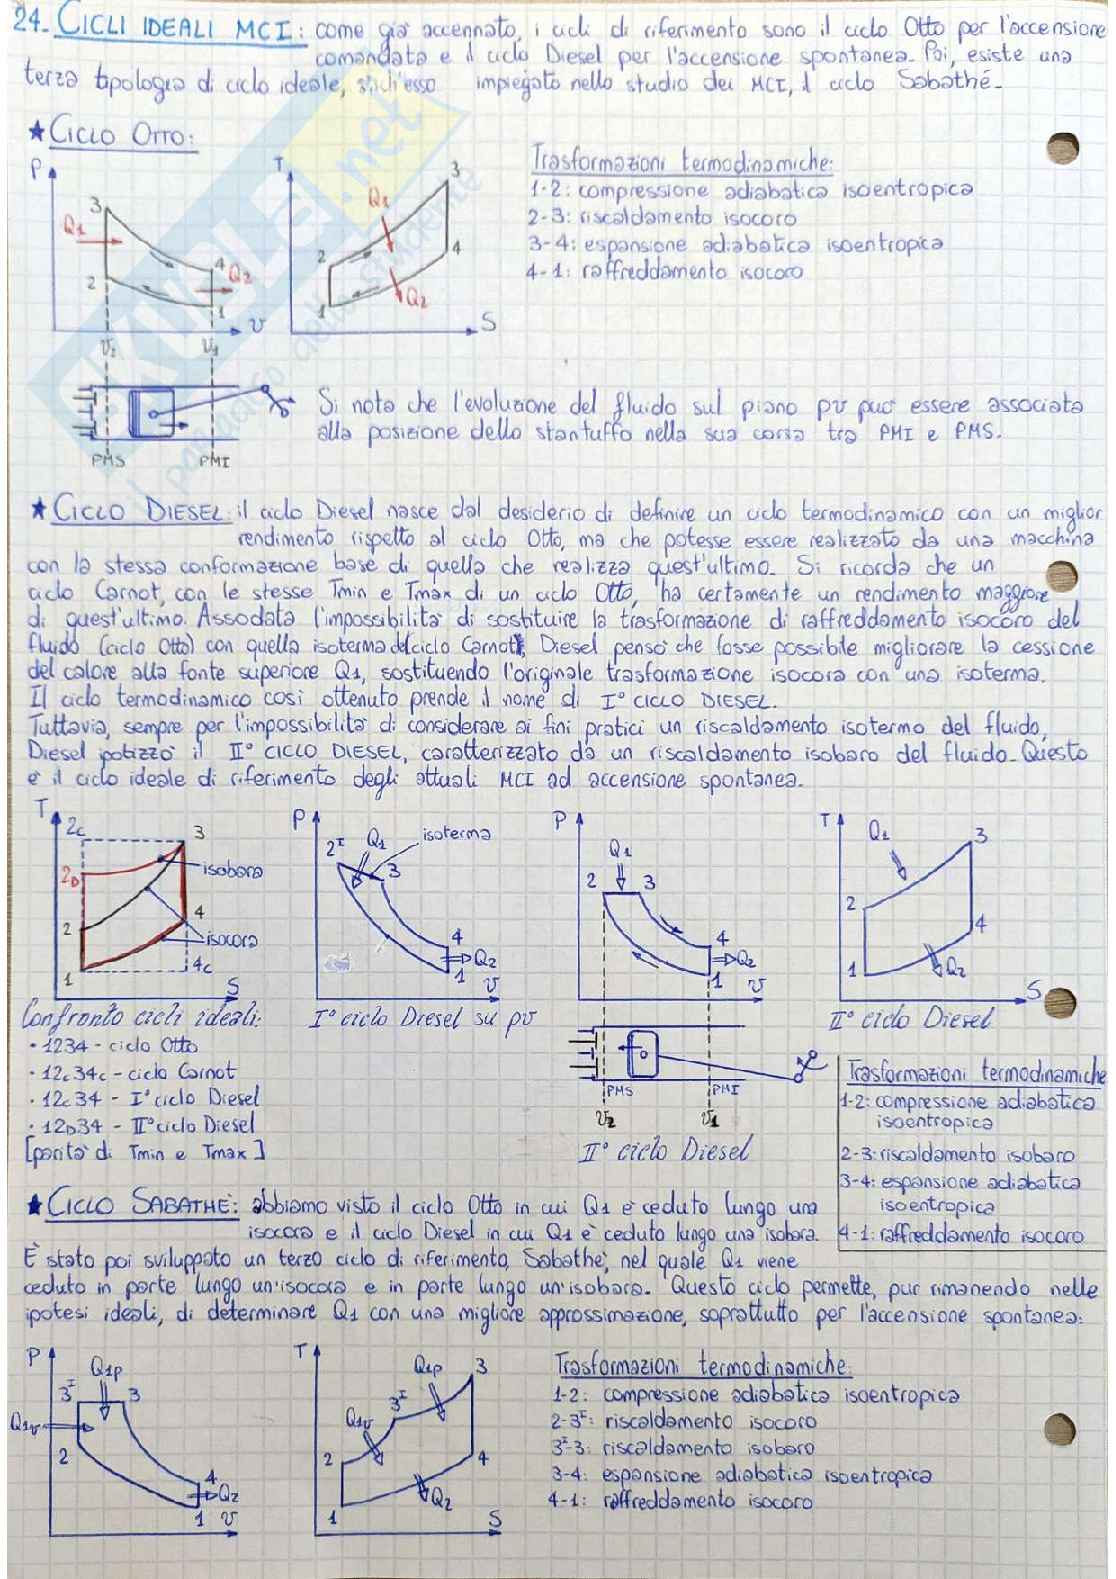 24. CICLI IDEALI MCI: come già accennato, i cicli di riferimento sono il ciclo Otto per l'accensione
comandata e il ciclo Diesel per l'accensione spontanea. Poi, esiste una
terza tipologia di ciclo ideale, anch'esso impiegato nello studio dei MCI, il ciclo Sabathé.
★ CICLO OTTO:
P
3
Q1
2
4
Q2
1
v
v2
v1
T
3
Q1
2
4
1
Q2
S
Trasformazioni termodinamiche:
1-2: compressione adiabatica isoentropica
2-3: riscaldamento isocoro
3-4: espansione adiabatica isoentropica
4-1: raffreddamento isocoro
PMS
PMI
Si nota che l'evoluzione del fluido sul piano pv può essere associata
alla posizione dello stantuffo nella sua corsa tra PMI e PMS.
★ CICLO DIESEL: il ciclo Diesel nasce dal desiderio di definire un ciclo termodinamico con un miglior
rendimento rispetto al ciclo Otto, ma che potesse essere realizzato da una macchina
con la stessa conformazione base di quella che realizza quest'ultimo. Si ricorda che un
ciclo Carnot, con le stesse Tmin e Tmax di un ciclo Otto, ha certamente un rendimento maggiore
di quest'ultimo. Assodata l'impossibilità di sostituire la trasformazione di raffreddamento isocoro del
fluido (ciclo Otto) con quella isoterma del ciclo Carnot, Diesel pensò che fosse possibile migliorare la cessione
del calore alla fonte superiore Q1, sostituendo l'originale trasformazione isocora con una isoterma.
Il ciclo termodinamico così ottenuto prende il nome di I° CICLO DIESEL.
Tuttavia, sempre per l'impossibilità di considerare ai fini pratici un riscaldamento isotermo del fluido,
Diesel ipotizzò il II° CICLO DIESEL, caratterizzato da un riscaldamento isobaro del fluido. Questo
è il ciclo ideale di riferimento degli attuali MCI ad accensione spontanea.
T
2c
3
2D
isobara
2
4
isocora
1
4c
S
P
2I
Q1
isoterma
3
4
Q2
1
v
P
Q1
2
3
4
Q2
1
v
T
Q1
3
2
4
1
Q2
S
Confronto cicli ideali:
· 1234 - ciclo Otto
· 12c34c - ciclo Carnot
· 12c34 - I° ciclo Diesel
· 12D34 - II° ciclo Diesel
[parità di Tmin e Tmax]
I° ciclo Diesel su pv
PMS
PMI
v2
v1
II° ciclo Diesel
II° ciclo Diesel
Trasformazioni termodinamiche
1-2: compressione adiabatica
isoentropica
2-3: riscaldamento isobaro
3-4: espansione adiabatica
isoentropica
4-1: raffreddamento isocoro
★ CICLO SABATHÈ: abbiamo visto il ciclo Otto in cui Q1 è ceduto lungo una
isocora e il ciclo Diesel in cui Q1 è ceduto lungo una isobara.
È stato poi sviluppato un terzo ciclo di riferimento, Sabathè, nel quale Q1 viene
ceduto in parte lungo un'isocora e in parte lungo un'isobara. Questo ciclo permette, pur rimanendo nelle
ipotesi ideali, di determinare Q1 con una migliore approssimazione, soprattutto per l'accensione spontanea:
P
Q1p
3I
3
Q1v
2
4
Q2
1
v
T
Q1p
3
3I
Q1v
2
4
Q2
1
S
Trasformazioni termodinamiche:
1-2: compressione adiabatica isoentropica
2-3I: riscaldamento isocoro
3I-3: riscaldamento isobaro
3-4: espansione adiabatica isoentropica
4-1: raffreddamento isocoro